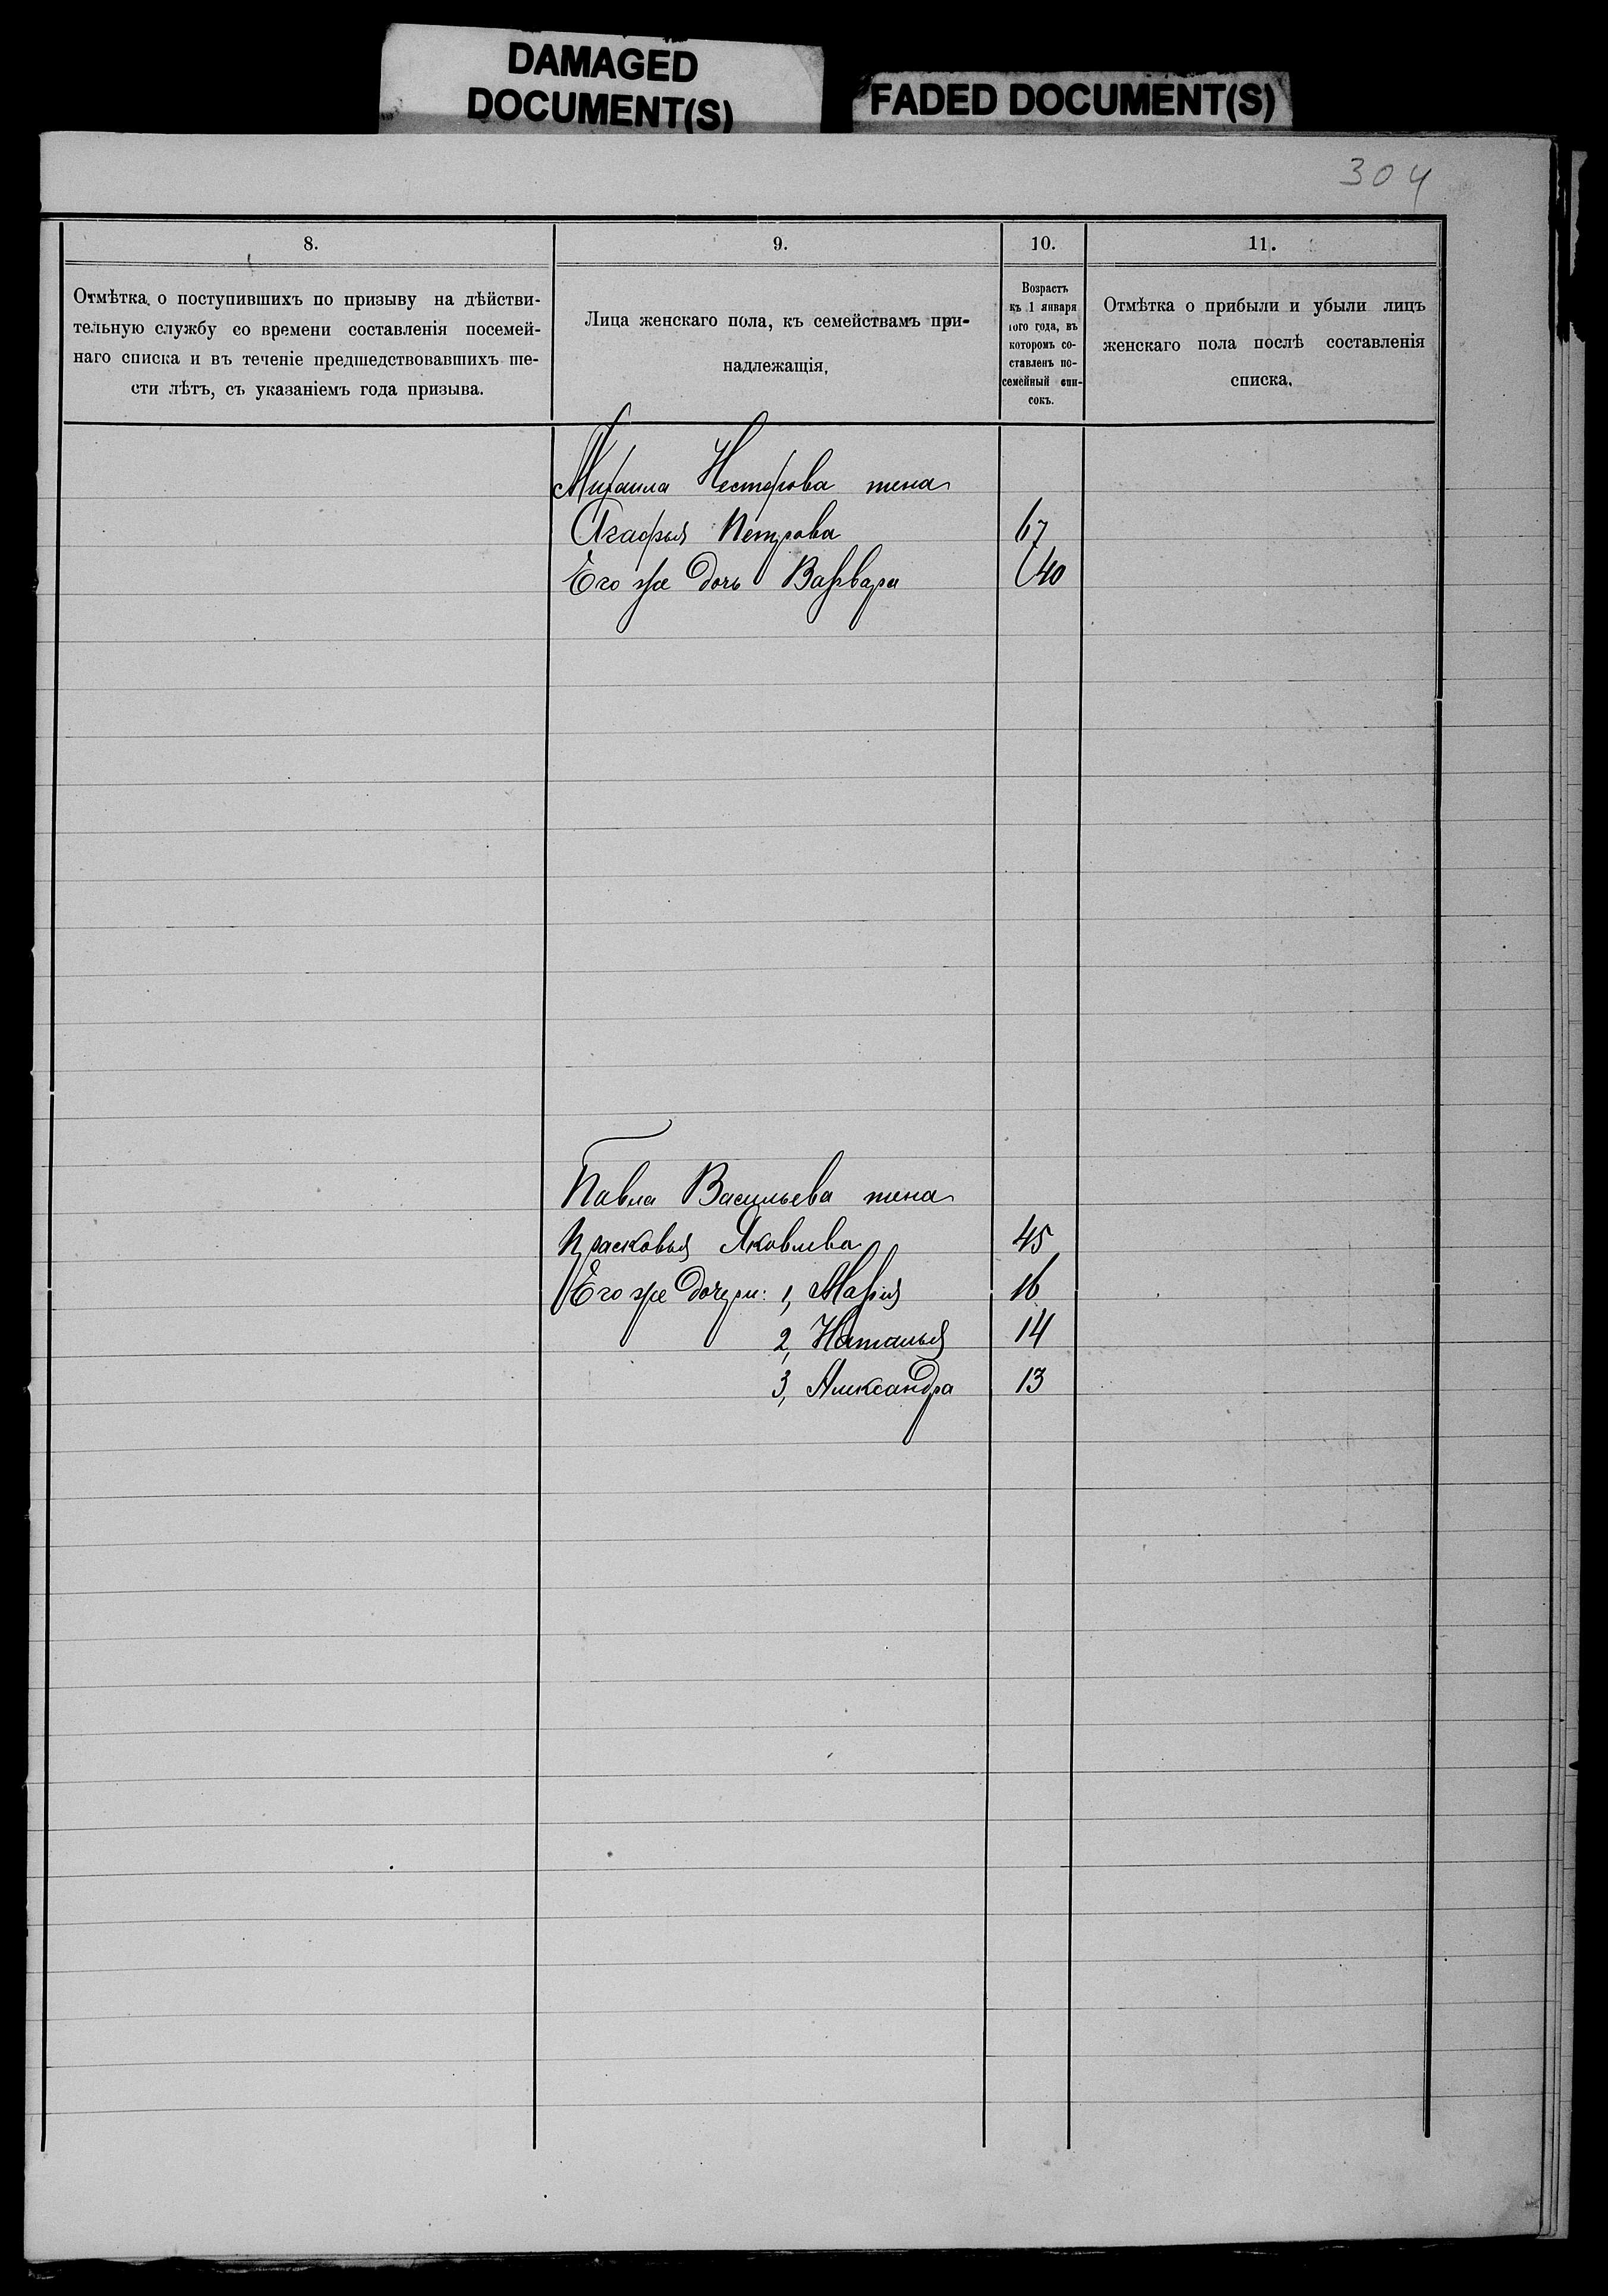 DAMAGED
DOCUMENT(S)
FADED DOCUMENT(S)
304
8.
Отмѣтка о поступившихъ по призыву на дѣйстви-
тельную службу со времени составленія посемей-
наго списка и въ теченіе предшедствовавшихъ ше-
сти лѣтъ, съ указаніемъ года призыва.
9.
Лица женскаго пола, къ семействамъ при-
надлежащія.
10.
Возрастъ
къ 1 января
того года, въ
которомъ со-
ставленъ по-
семейный спи-
сокъ.
11.
Отмѣтка о прибыли и убыли лицъ
женскаго пола послѣ составленія
списка.
Михаила Нестерова жена
Агафья Петрова 67
Его же дочь Варвара 40
Павла Васильева жена
Прасковья Яковлева 45
Его же дочери: 1, Марія 16
2, Наталья 14
3, Александра 13